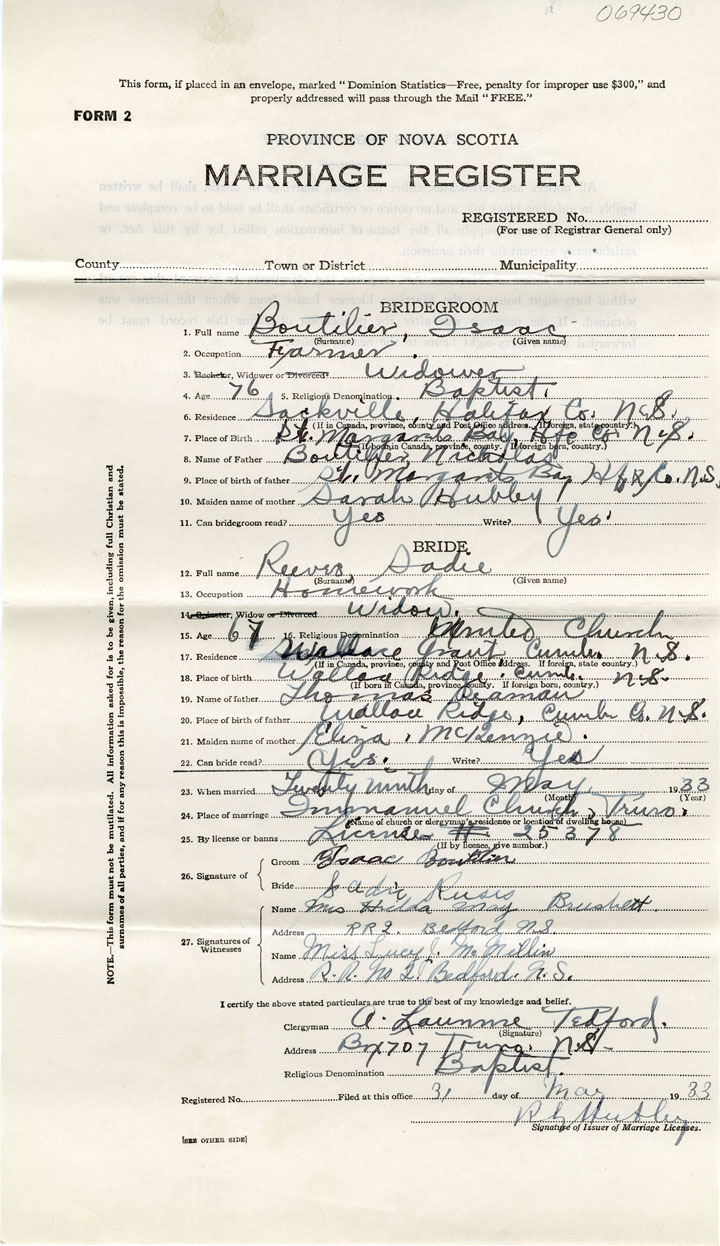 069430
This form, if placed in an envelope, marked "Dominion Statistics—Free, penalty for improper use $300," and
properly addressed will pass through the Mail "FREE."
FORM 2
PROVINCE OF NOVA SCOTIA
MARRIAGE REGISTER
REGISTERED No.
(For use of Registrar General only)
County Town or District Municipality
BRIDEGROOM
1. Full name Boutilier, Isaac
(Surname) (Given name)
2. Occupation Farmer
3. Bachelor, Widower or Divorced Widower
4. Age 76 5. Religious Denomination Baptist
6. Residence Sackville, Halifax Co. N.S.
(If in Canada, province, county and Post Office address. If foreign, state country.)
7. Place of Birth St. Margarets Bay, Hfx Co. N.S.
(If born in Canada, province, county. If foreign born, country.)
8. Name of Father Boutilier, Nicholas
9. Place of birth of father St. Margarets Bay Hfx Co. N.S.
10. Maiden name of mother Sarah Hubley
11. Can bridegroom read? Yes Write? Yes
BRIDE
12. Full name Sadie
(Surname) (Given name)
13. Occupation Homework
14. Spinster, Widow or Divorced Widow.
15. Age 67 16. Religious Denomination United Church
17. Residence Wallace Grant, Cumb. N.S.
(If in Canada, province, county and Post Office Address. If foreign, state country.)
18. Place of birth Wallace Ridge, Cumb. N.S.
(If born in Canada, province, county. If foreign born, country.)
19. Name of father Thomas
20. Place of birth of father Wallace Ridge, Cumb Co. N.S.
21. Maiden name of mother Eliza, McKenzie.
22. Can bride read? Yes. Write? Yes
23. When married Twenty ninth day of May 1933
(Month) (Year)
24. Place of marriage Immanuel Church, Truro.
(Name of church or clergyman's residence or location of dwelling house)
25. By license or banns License # 25378
(If by licence, give number.)
26. Signature of
Groom Isaac Boutilier
Bride Sadie
27. Signatures of
Witnesses
Name Mrs Hilda May Brushett
Address RR2. Bedford N.S
Name Miss Lucy McMillin
Address R.R. No 2 Bedford. N.S.
I certify the above stated particulars are true to the best of my knowledge and belief.
Clergyman A. Tedford.
(Signature)
Address Box 707 Truro. N.S.
Religious Denomination Baptist.
Registered No. Filed at this office 31 day of May 1933
Hubley
Signature of Issuer of Marriage Licenses.
[SEE OTHER SIDE]
NOTE.—This form must not be mutilated. All information asked for is to be given, including full Christian and
surnames of all parties, and if for any reason this is impossible, the reason for the omission must be stated.